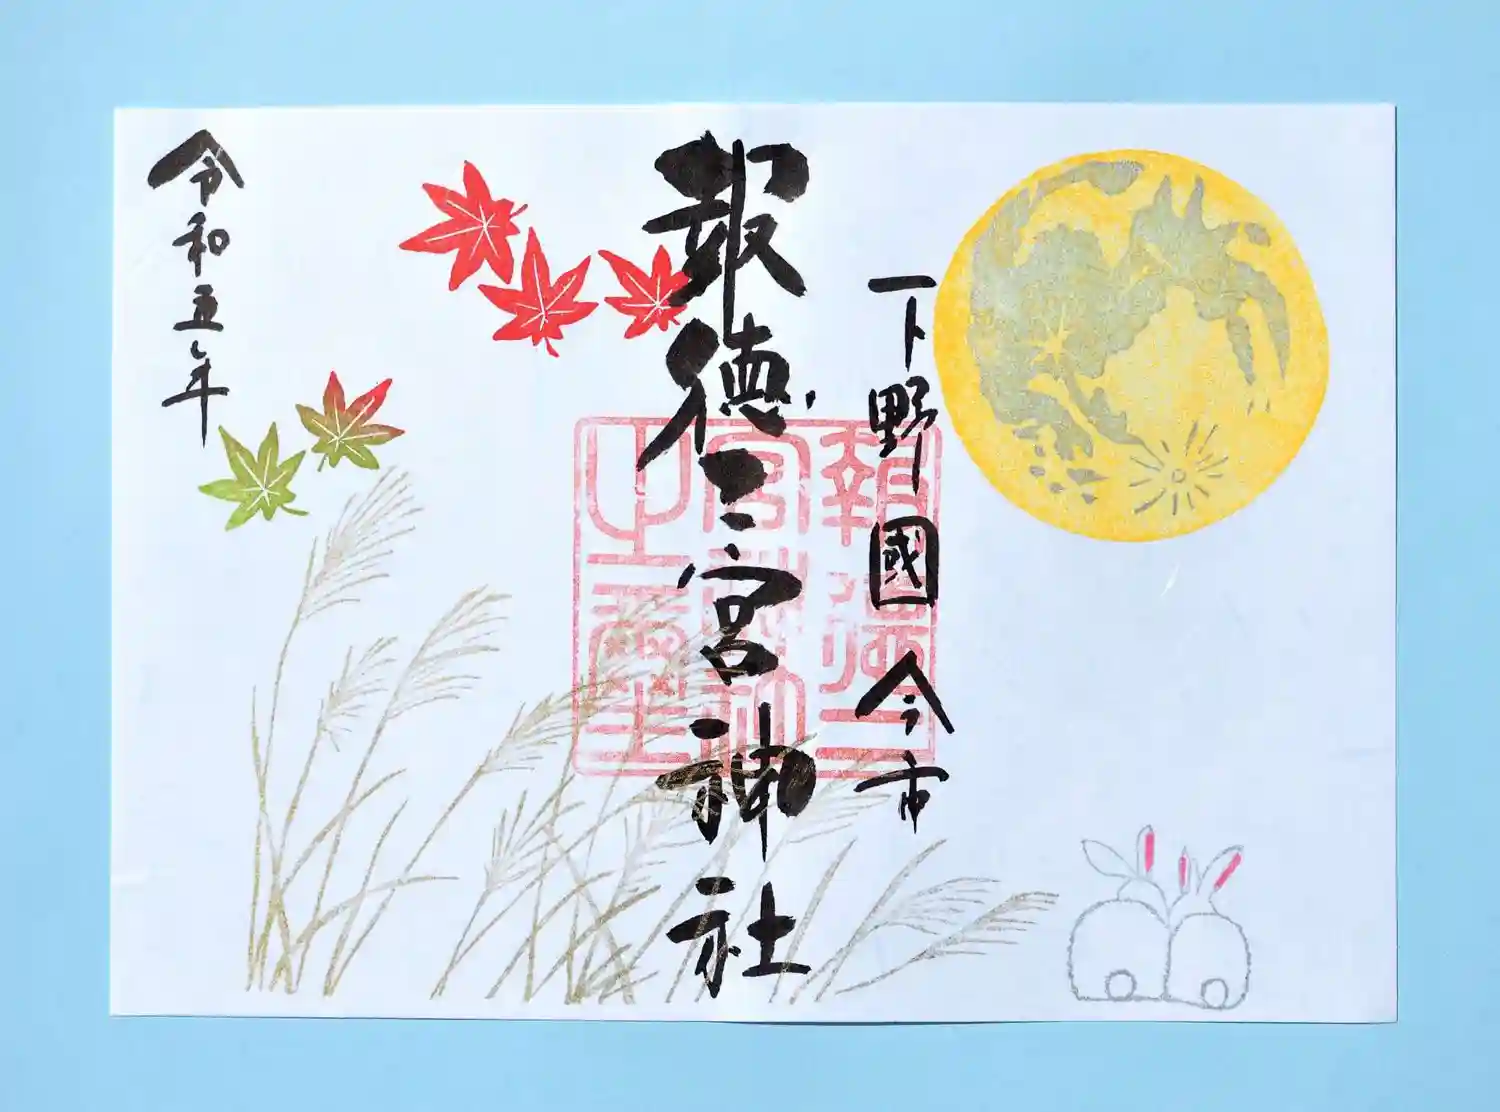 下野國今市
報徳二宮神社
令和五年
報徳二
宮神社